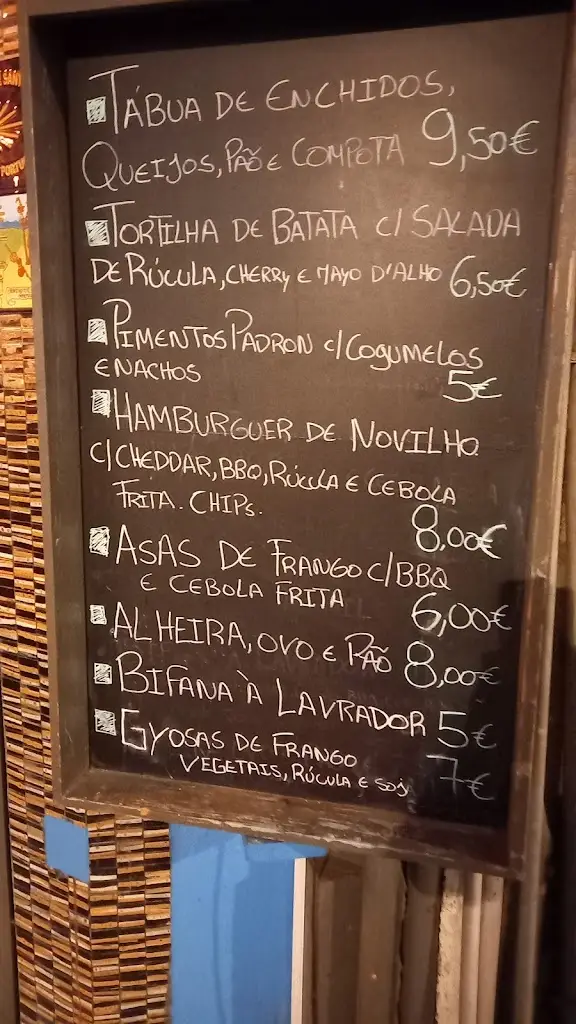 TÁBUA DE ENCHIDOS,
QUEIJOS, PÃO E COMPOTA 9,50€
TORTILHA DE BATATA C/ SALADA
DE RÚCULA, CHERRY E MAYO D'ALHO 6,50€
PIMENTOS PADRON C/COGUMELOS
E NACHOS 5€
HAMBURGUER DE NOVILHO
C/CHEDDAR, BBQ, RÚCULA E CEBOLA
FRITA. CHIPS. 8,00€
ASAS DE FRANGO C/BBQ
E CEBOLA FRITA 6,00€
ALHEIRA, OVO E PÃO 8,00€
BIFANA À LAVRADOR 5€
GYOSAS DE FRANGO
VEGETAIS, RÚCULA E SOJ 7€